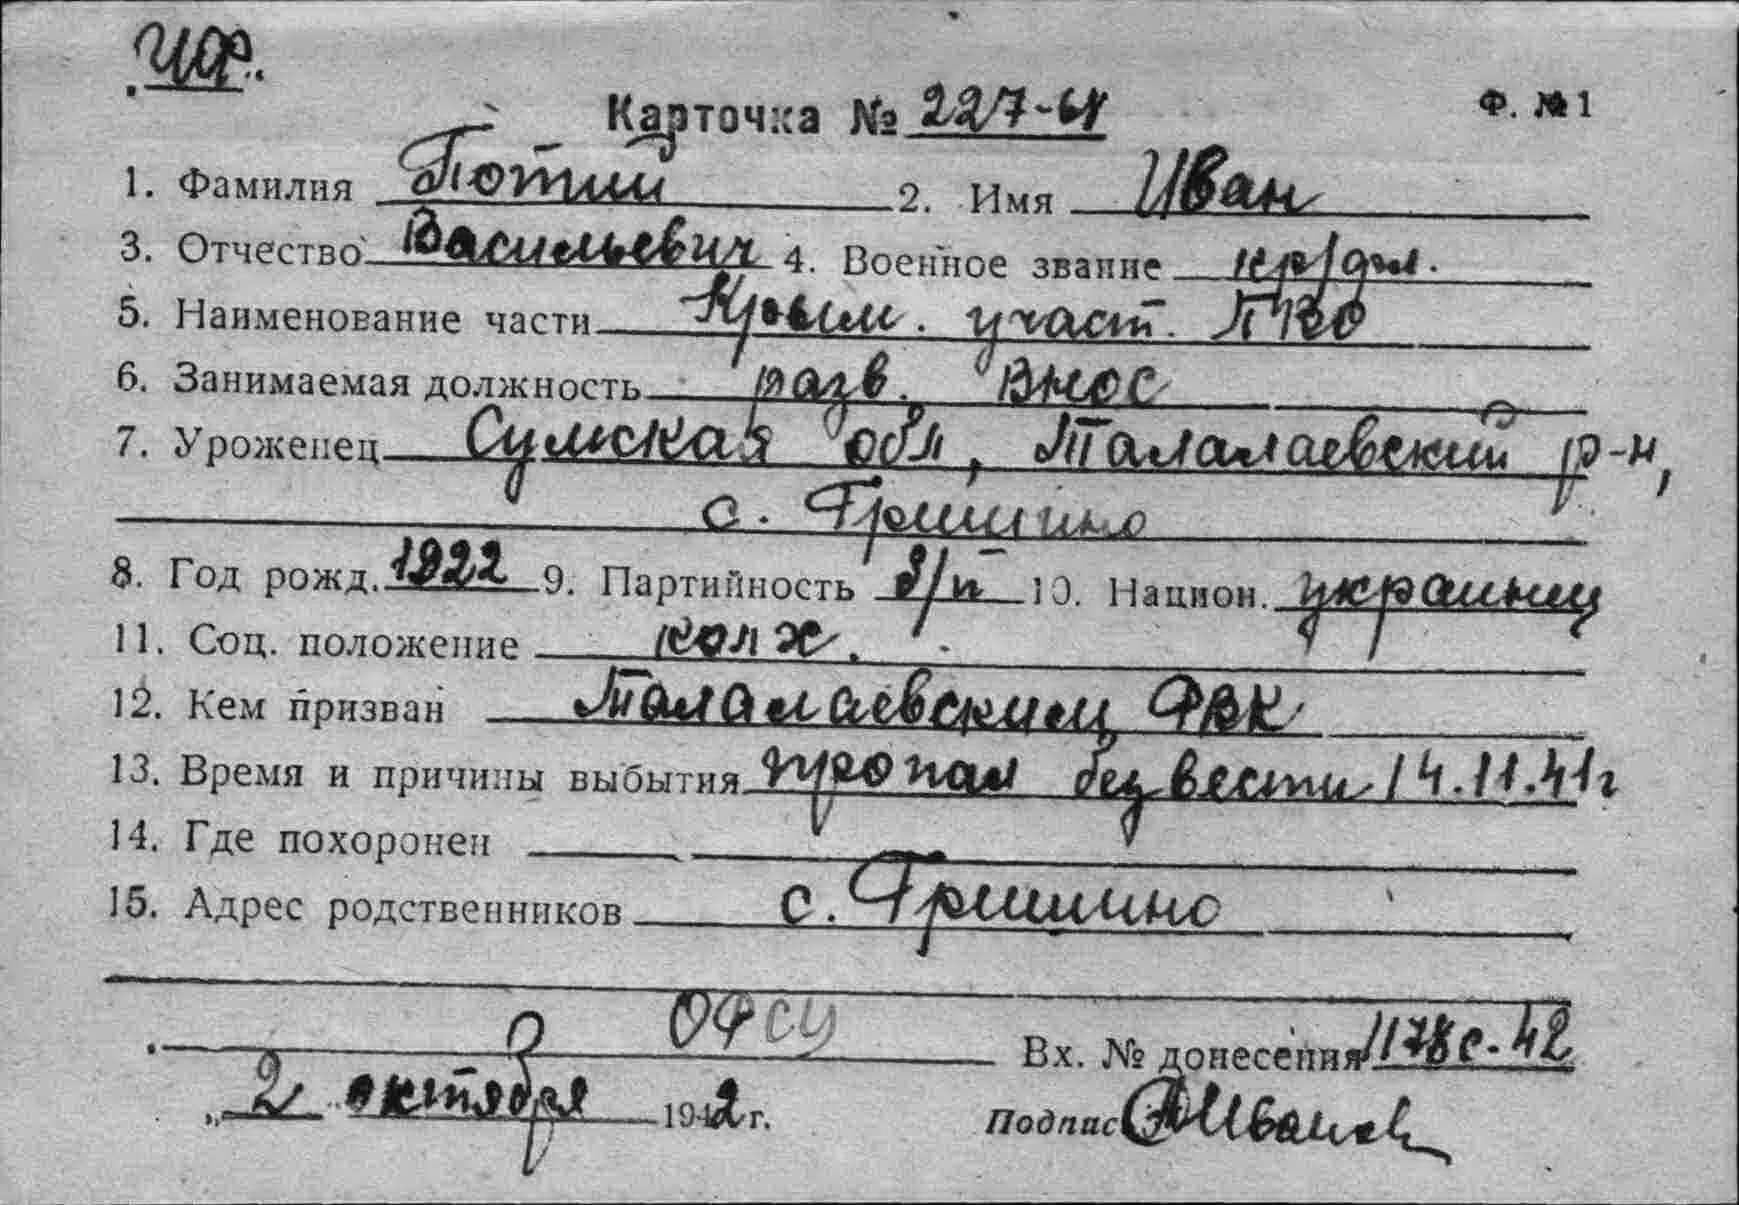 Карточка № 227-61 Ф. № 1
1. Фамилия Потий 2. Имя Иван
3. Отчество Васильевич 4. Военное звание кр/арм.
5. Наименование части Крым. участ. ПВО
6. Занимаемая должность разв. ВНОС
7. Уроженец Сумская обл, Талалаевский р-н,
с. Гришино
8. Год рожд. 1922 9. Партийность б/п 10. Национ. украинец
11. Соц. положение колх.
12. Кем призван Талалаевским РВК
13. Время и причины выбытия пропал без вести 14.11.41г
14. Где похоронен
15. Адрес родственников с. Гришино
Вх. № донесения 1178с-42
„ 2 октября 1942 г. Подпись Иванов